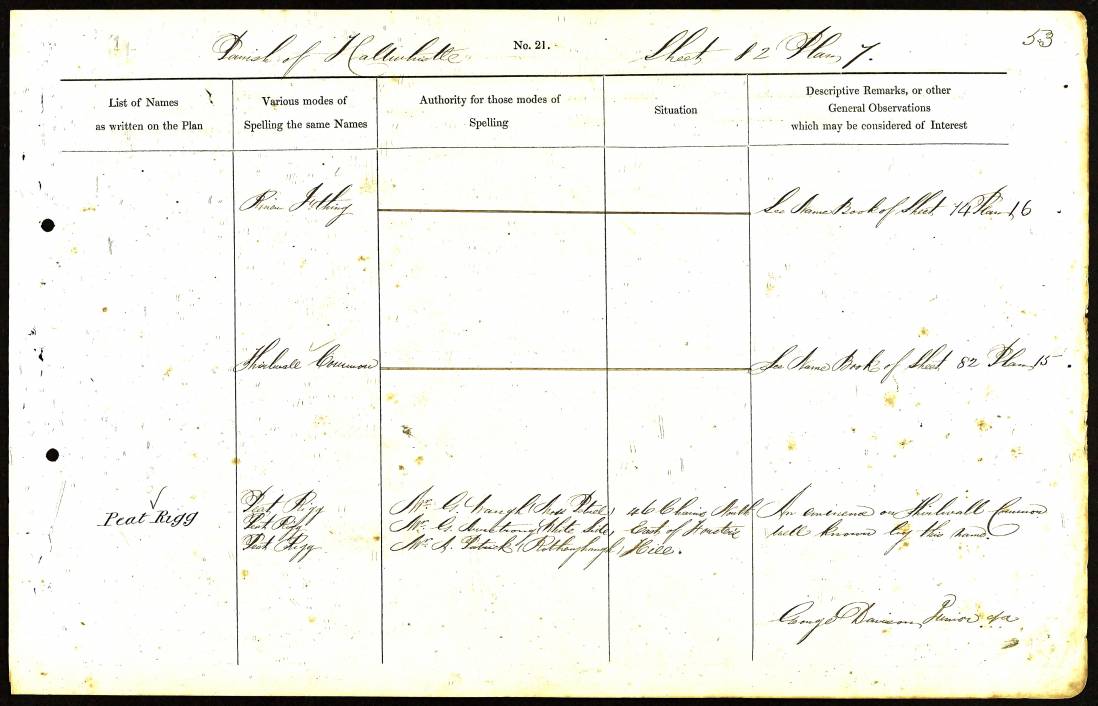 53
Parish of Haltwhistle No. 21. Sheet 82 Plan 7.
List of Names
as written on the Plan
Various modes of
Spelling the same Names
Authority for those modes of
Spelling
Situation
Descriptive Remarks, or other
General Observations
which may be considered of Interest
See Name Book of Sheet 74 Plan 16
Thirlwall Common See Name Book of Sheet 82 Plan 15.
Peat Rigg
Peat Rigg Mr. G. 46 Chains South
Peat Rigg Mr. G. Armstrong White Side East of
Peat Rigg Mr. Hill.
An eminence on Thirlwall Common
well known by this name
George Davison Junior c/a